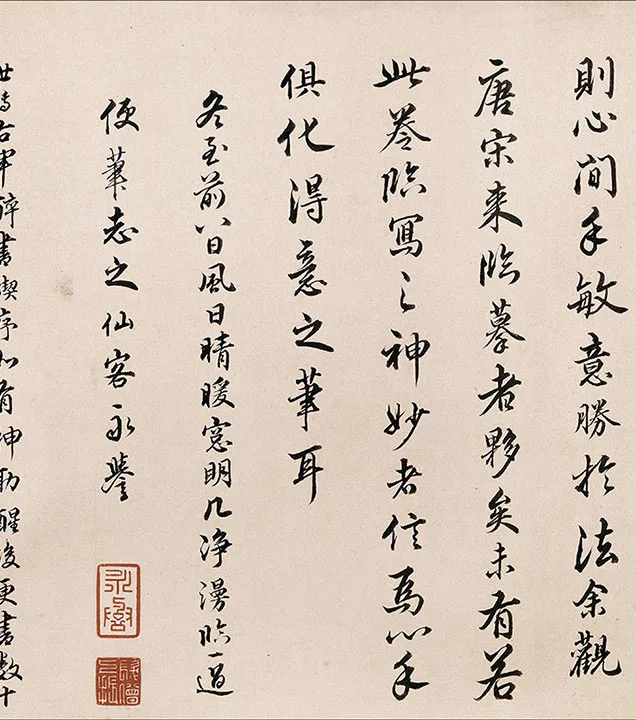 則心閒手敏意勝於法余觀
唐宋来臨摹者夥矣未有若
此卷臨寫之神妙者信為心手
俱化得意之筆耳
冬至前八日風日晴暖窓明几浄漫臨一過
便筆志之仙客永譽
永譽
世傳右軍醉書禊序如有神助醒後更書數十